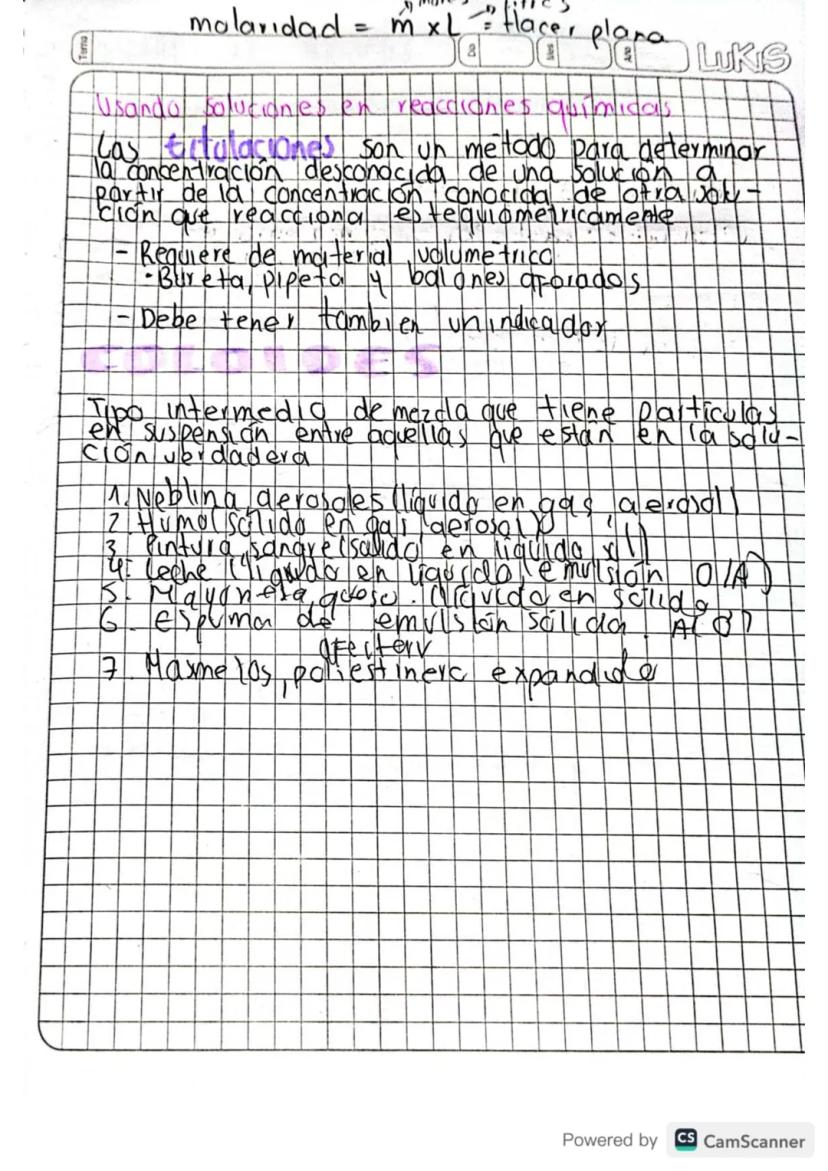 molaridad = m x L = Hacer plana
Tema
Día
Mes
Año
LUKIS
Usando soluciones en reacciones químicas
Las titulaciones son un metodo para determinar
la concentración desconocida de una solución a
partir de la concentración conocida de otra solu-
ción que reacciona estequiometricamente
- Requiere de material volumetrico
• Bureta, pipeta y balones aforados
- Debe tener tambien un indicador
COLOIDES
Tipo intermedio de mezcla que tiene particulas
en suspensión entre aquellas que están en la solu-
ción verdadera
1. Neblina, aerosoles (líquido en gas, aerosol)
2. Humo (solido en gas aerosol)
3. Pintura, sangre (solido en liquido
4. Leche (liquido en liquido, emulsión O/A)
5. Mayoneta, queso. liquido en solido
6. espuma de emulsión sólida A(O)
7. Masmelos, poliestinero expandido
Powered by CS CamScanner